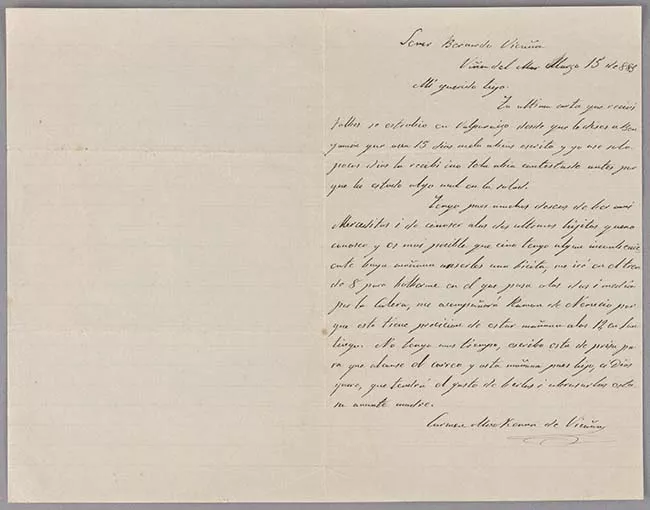 Señor Bernardo Vicuña
Viña del Mar Marzo 15 de 885
Mi querido hijo.
Tu ultima carta que recivi
se estrabio en Valparaiso desde que le dises a Ben
jamin que asia 15 dias me la abias escrito y yo ase solo
pocos dias la recibi ino tela abia contestado antes por
que he estado algo mal en la salud.
Tengo pues muchos deseos de ber ami
Merceditas i de conoser alas dos ultimas hijitas que no
conosco y es mui posible que sino tengo algun inconbenie
nte baya mañana aserles una bicita, me iré en el tren
de 8 para bolberme en el que pasa alas dos i media
por la Calera, me acompañará Ramon de Nemecio por
que este tiene presicion de estar mañana alas 12 en San
tiago. No tengo mas tiempo, escribo esta de prisa pa
ra que alcanse el correo y asta mañana pues hijo, si Dios
quiere, que tendrá el gusto de berlos i abrasarlos esta
su amante madre.
Carmen MacKenna de Vicuña